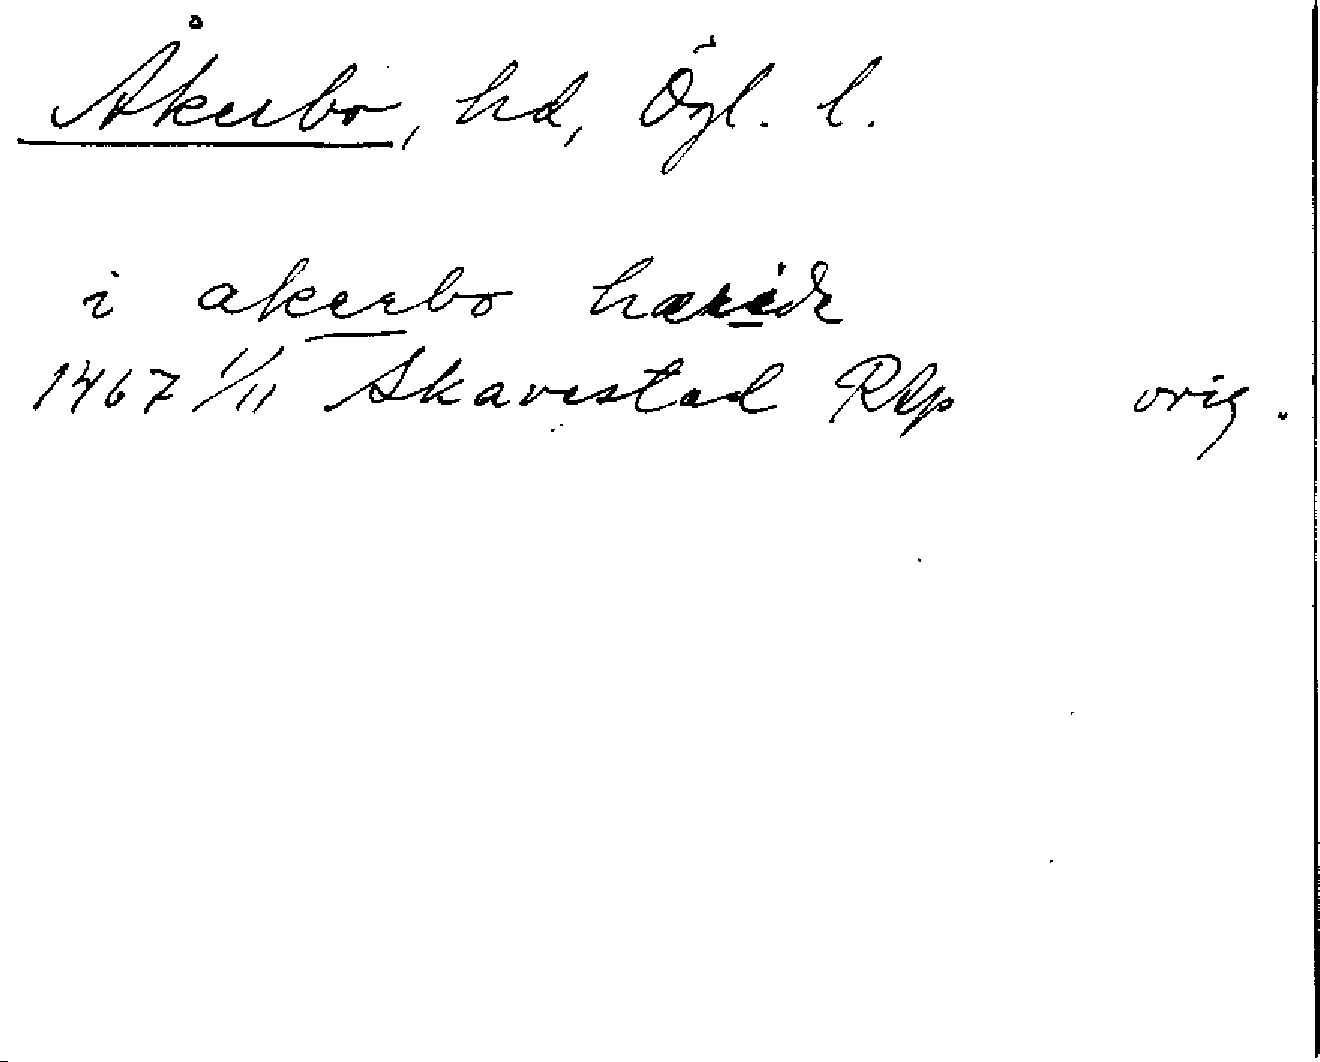 Åkerbo, hd, Ögl. l.
i akerbo hæridh
1467 1/11 Skavestad RAp orig.